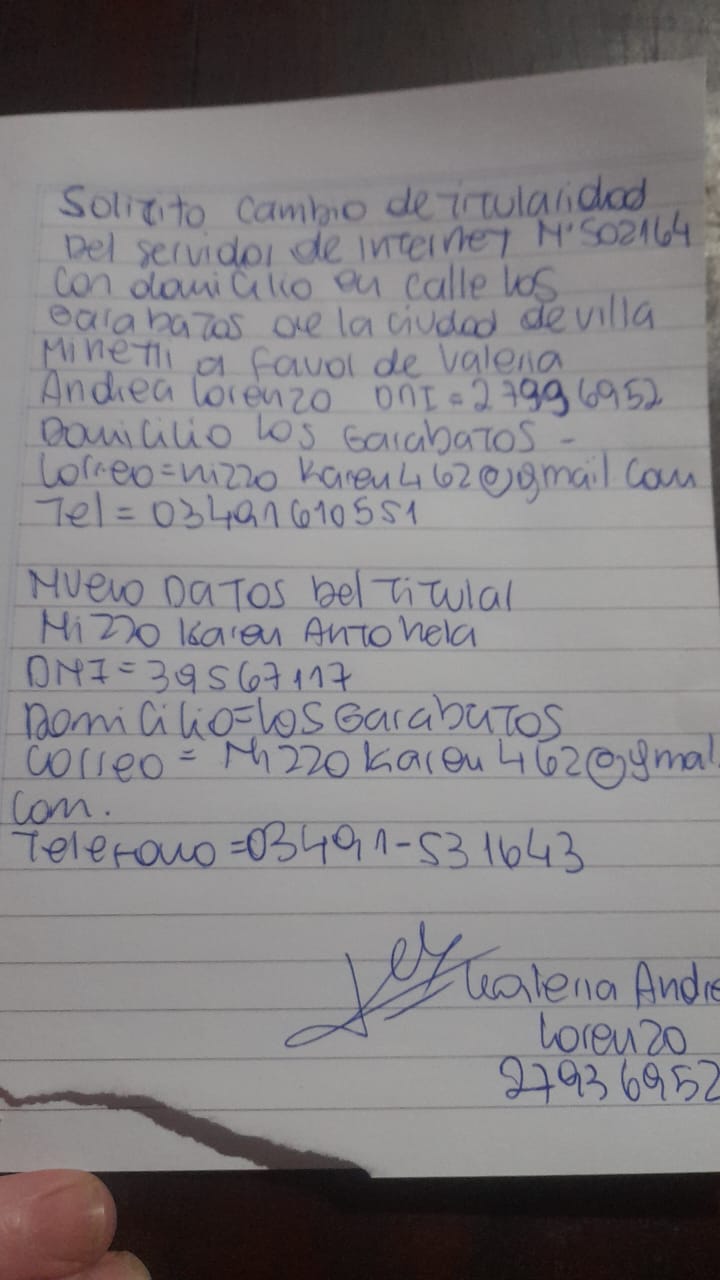 Solicito cambio de titularidad
Del servidor de internet N° 502164
Con domicilio en calle los
Garabatos de la ciudad de villa
Minetti a favor de Valeria
Andrea Lorenzo DNI = 27996952
Domicilio Los Garabatos -
Correo = nizzo Karen462@gmail com
Tel = 03491610551
Nuevo DATOS Del Titular
Nizzo Karen Antonela
DNI = 39567117
Domicilio = Los Garabatos
Correo = Nizzo Karen 462@gmail.
com.
Telefono = 03491-531643
Valeria Andre
Lorenzo
27936952